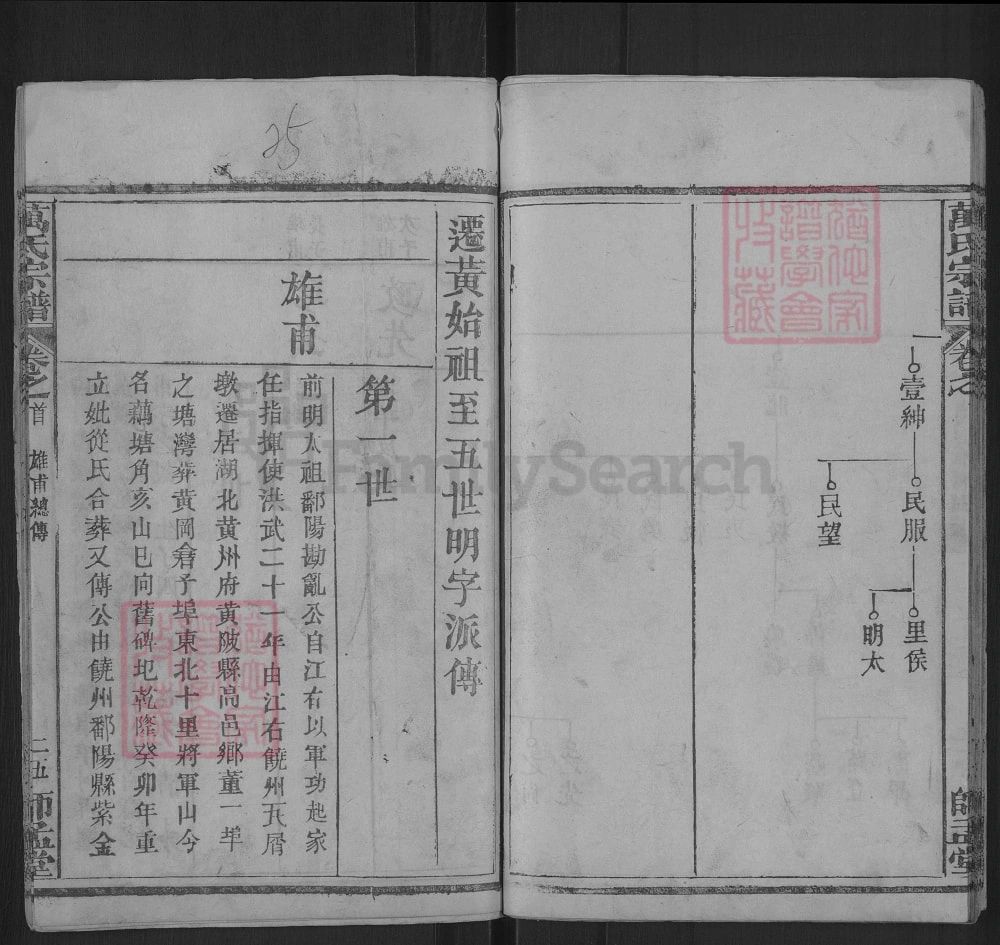 萬氏宗譜
卷之
師孟堂
壹紳
民服
民望
里侯
明太
遷黃始祖至五世明字派傳
第一世
雄甫
前明太祖鄱陽勘亂公自江右以軍功起家
任指揮使洪武二十一年由江右饒州瓦屑
墩遷居湖北黃州府黃陂縣高邑鄉董一𡌴
之塘灣葬黃岡倉子埠東北十里將軍山今
名藕塘角亥山巳向舊碑圮乾隆癸卯年重
立妣從氏合葬又傳公由饒州鄱陽縣紫金
萬氏宗譜
卷之首
雄甫總傳
二五
師孟堂
25
FamilySearch